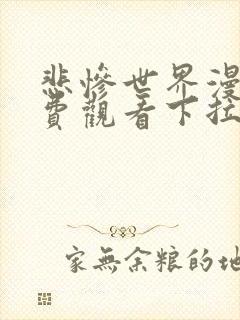 悲慘世界漫
費觀看下拉
家無余粮的地